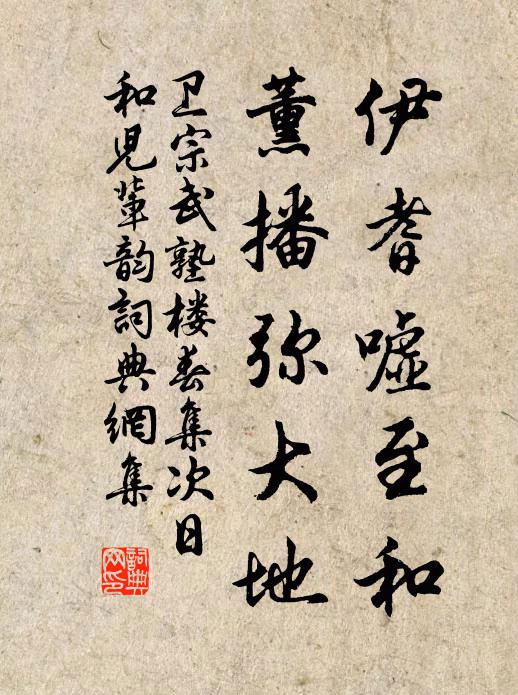 伊耆嘘至和
薰播弥大地
卫宗武塾楼春集次日
和儿辈韵詞典網集
詞典网印